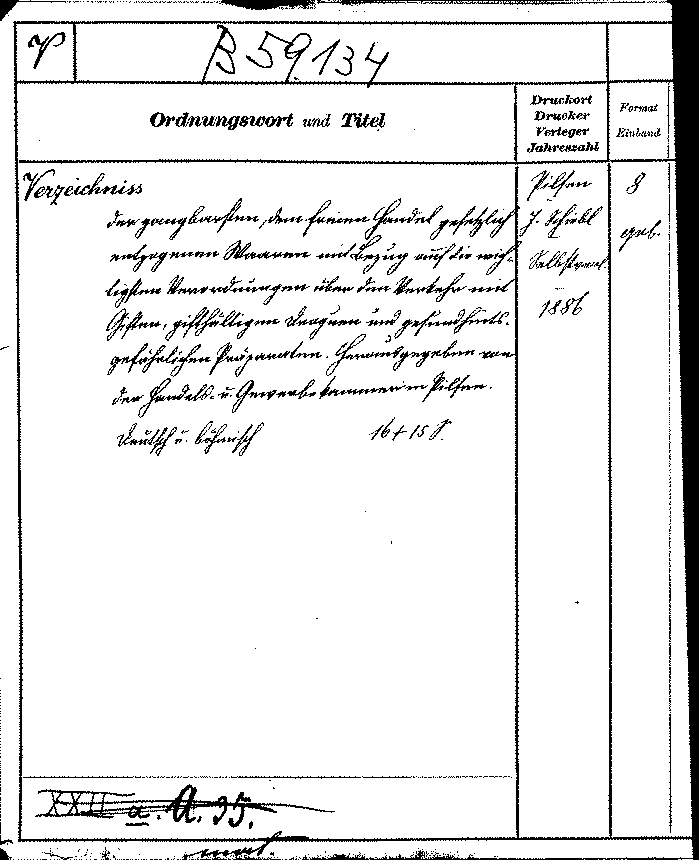 V
B 59.134
Ordnungswort und Titel
Druckort
Drucker
Verleger
Jahreszahl
Format
Einband
Verzeichniss
der gangbarsten, dem freien Handel gesetzlich
entzogenen Waaren mit Bezug auf die wich-
tigsten Verordnungen über den Verkehr mit
Giften, gifthältigen Droguen und gesundheits-
gefährlichen Präparaten. Herausgegeben von
der Handels- u. Gewerbekammer in Pilsen.
Deutsch u. böhmisch 16 + 15 S.
Pilsen
J. Schiebl
Selbstverl.
1886
8
geb.
XXII a. A. 35.